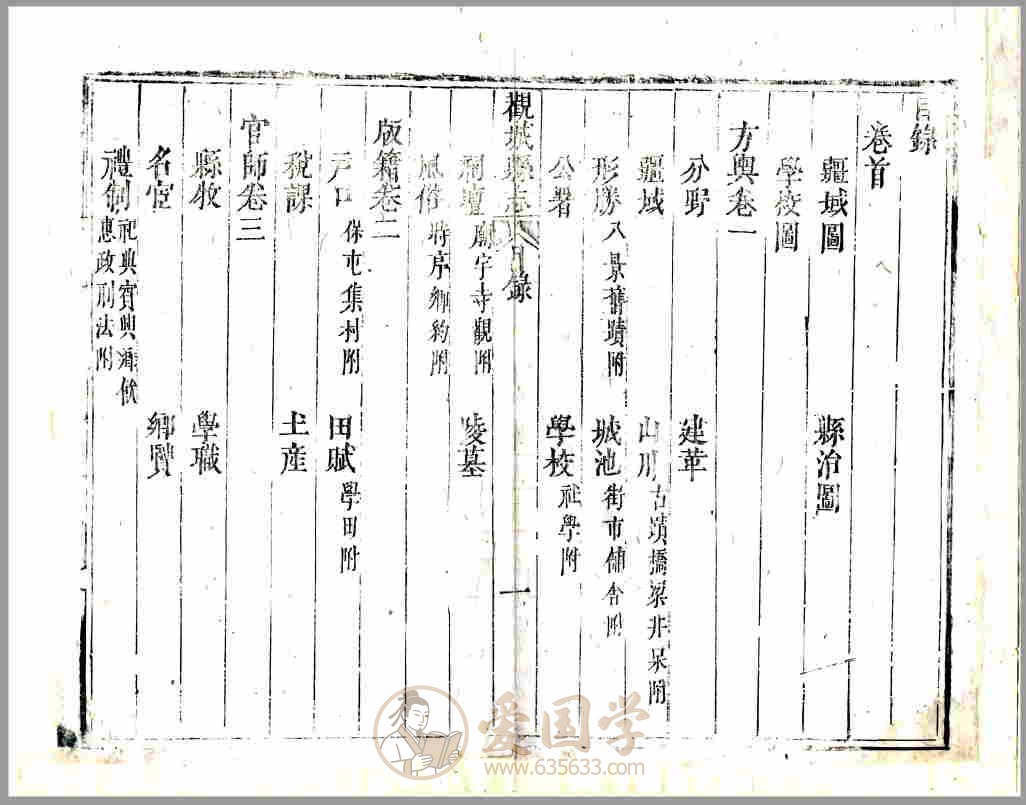 目錄
卷首
疆域圖　縣治圖
學校圖
方輿卷一
分野　建革
疆域　山川古蹟橋梁井泉附
形勝八景舊蹟附　城池街市舖舍附
公署　學校社學附
觀城縣志　目錄　一
祠壇廟宇寺觀附　陵墓
風俗時序鄉約附
版籍卷二
戶口保屯集村附　田賦學田附
稅課　土產
官師卷三
縣牧　學職
名宦　鄉賢
禮制祀典賓興鄉飲
惠政刑法附
爱国学
www.635633.com